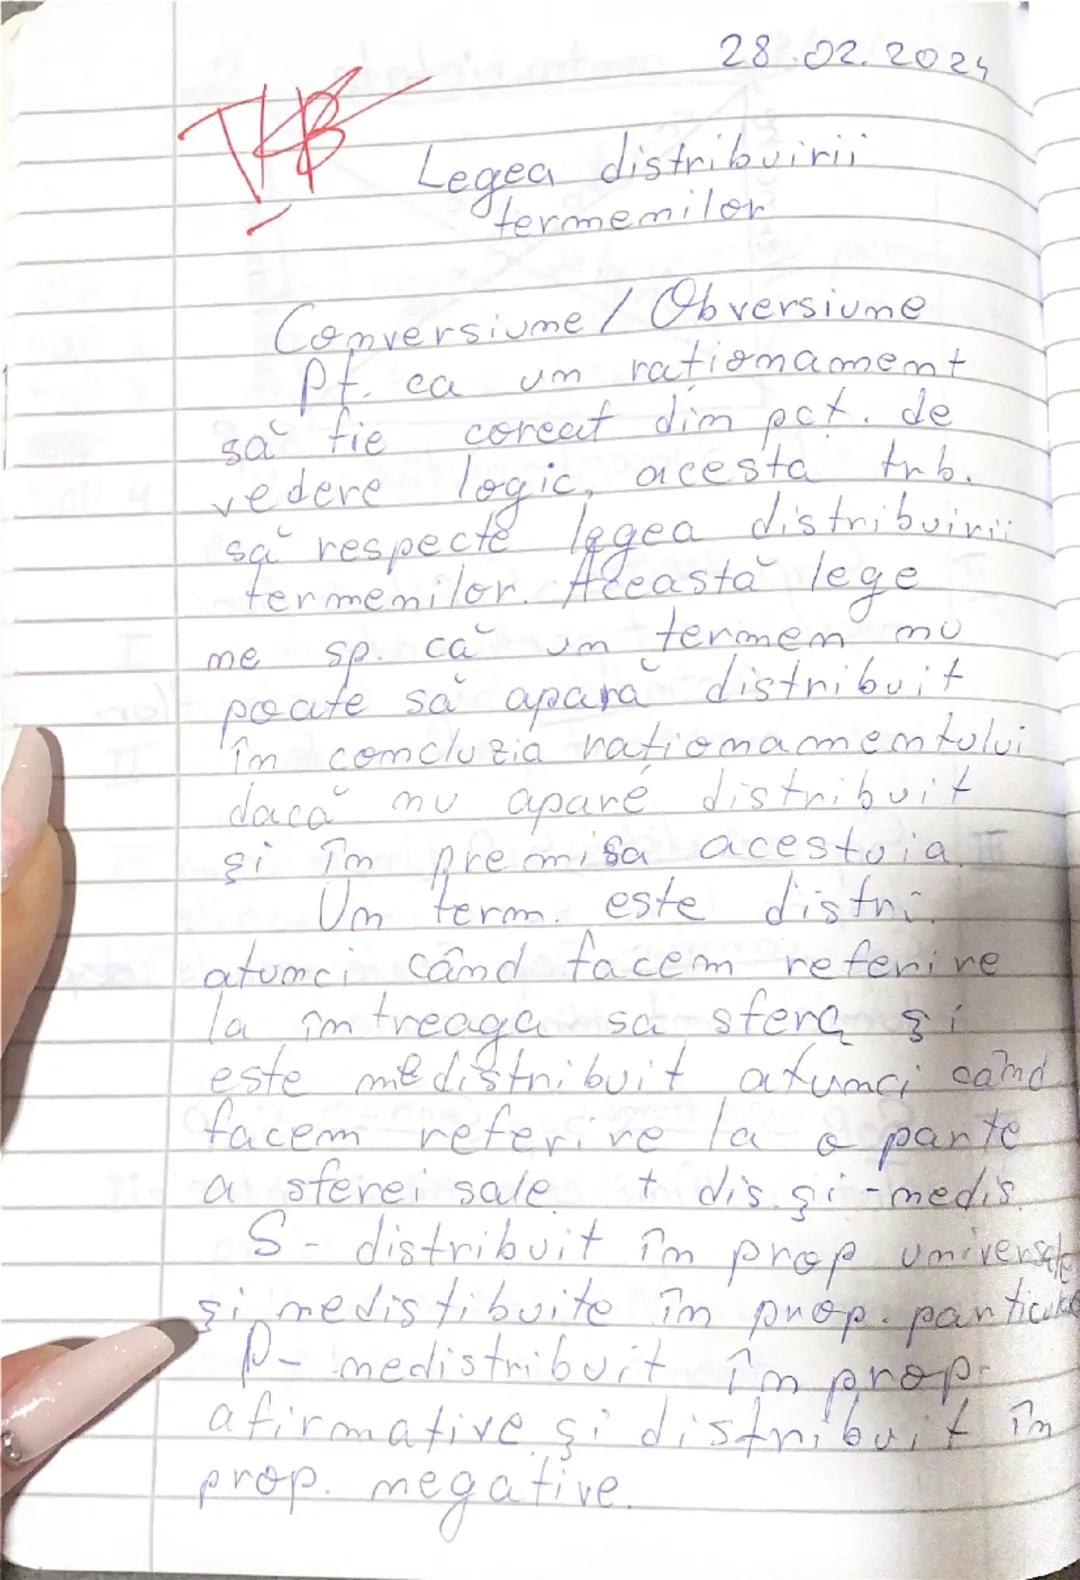 28.02.2024
Legea distribuirii
termenilor
Conversiune / Obversiune
Pt. ca un rationament
să fie corect din pct. de
vedere logic, acesta trb.
să respecte legea distribuirii
termenilor. Această lege
ne sp. că un termen nu
poate să apară distribuit
în concluzia raționamentului
dacă nu apare distribuit
și în premisa acestuia.
Un term. este distri.
atunci când facem referire
la întreaga sa sferă și
este nedistribuit atunci când
facem referire la o parte
a sferei sale. + dis. și - nedis.
S - distribuit în prop universale
și nedistibuite în prop. particulare
P - nedistribuit în prop.
afirmative și distribuit în
prop. negative.